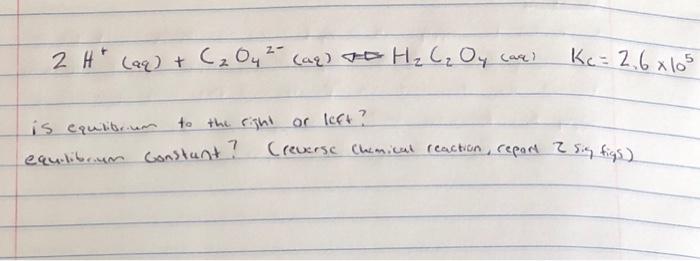 2 H⁺ (aq) + C₂O₄²⁻ (aq) ⇌ H₂C₂O₄ (aq) Kc = 2.6 x10⁵
is equilibrium to the right or left?
equilibrium constant? (reverse chemical reaction, report 2 sig figs)